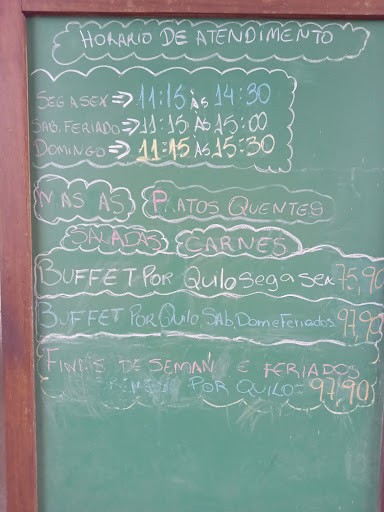 HORARIO DE ATENDIMENTO
SEG A SEX ⇒ 11:15 ÀS 14:30
SAB. FERIADO ⇒ 11:15 ÀS 15:00
DOMINGO ⇒ 11:15 ÀS 15:30
MAS AS PRATOS QUENTES
SALADAS CARNES
BUFFET POR QUILO Seg a sex 75,90
BUFFET POR QUILO SAB, Dom e Feriados 97,90
FINIS DE SEMAN E FERIADOS
POR QUILO = 97,90